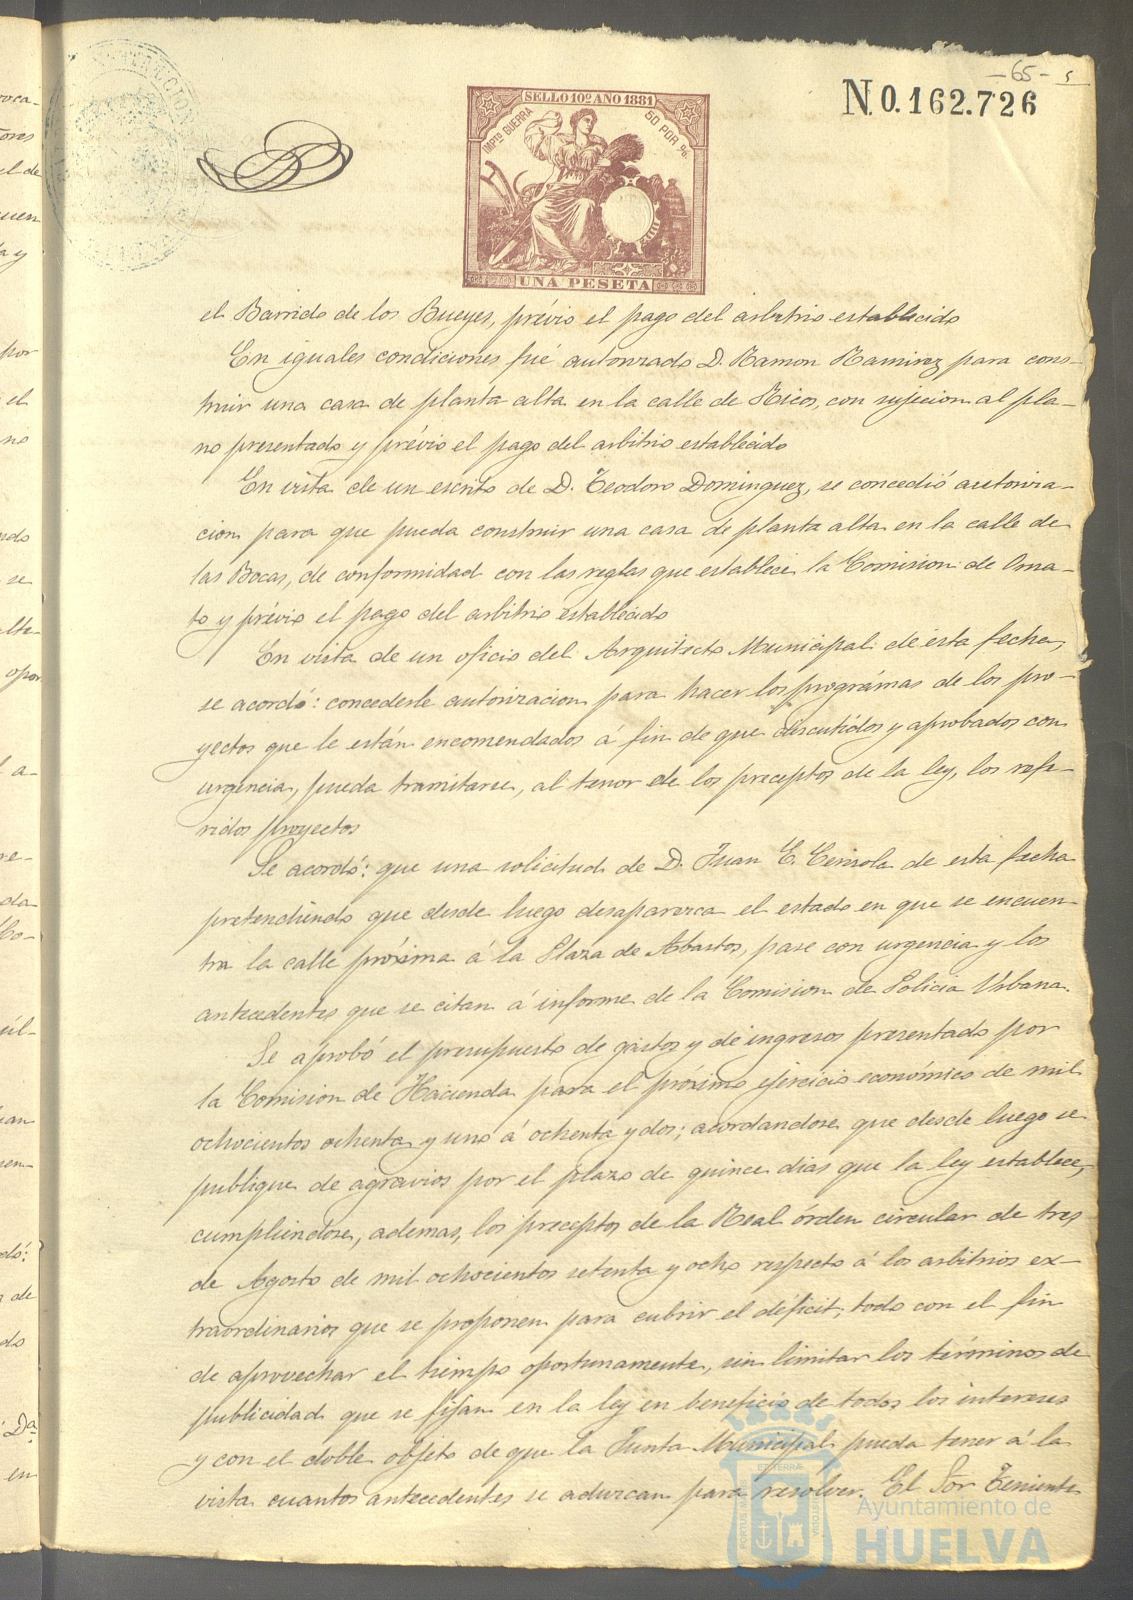 -65- 5
N.0.162.726
SELLO 10º AÑO 1881
IMPTO GUERRA 50 POR %
UNA PESETA
el Barrido de los Bueyes, prévio el pago del arbitrio establecido
En iguales condiciones fué autorizado D. Ramon Ramirez para cons-
truir una casa de planta alta en la calle de Ricos, con sujecion al pla-
no presentado y prévio el pago del arbitrio establecido
En vista de un escrito de D. Teodoro Dominguez, se concedió autoriza-
cion para que pueda construir una casa de planta alta en la calle de
las Bocas, de conformidad con las reglas que establece la Comision de Orna-
to y prévio el pago del arbitrio establecido
En vista de un oficio del Arquitecto Municipal de esta fecha,
se acordó: concederle autorizacion para hacer los prográmas de los pro-
yectos que le están encomendados á fin de que discutidos y aprobados con
urgencia, pueda tramitarse, al tenor de los preceptos de la ley, los refe-
ridos proyectos
Se acordó: que una solicitud de D. Juan E. Cerisola de esta fecha
pretendiendo que desde luego desaparezca el estado en que se encuen-
tra la calle próxima á la Plaza de Abastos, pase con urgencia y los
antecedentes que se citan á informe de la Comision de Policia Urbana.
Se aprobó el presupuesto de gastos y de ingresos presentado por
la Comision de Hacienda para el próximo ejercicio económico de mil
ochocientos ochenta y uno á ochenta y dos; acordandose que desde luego se
publique de agravios por el plazo de quince dias que la ley establece,
cumpliendose, ademas, los preceptos de la Real órden circular de tres
de Agosto de mil ochocientos setenta y ocho respecto á los arbitrios ex-
traordinarios que se proponen para cubrir el déficit; todo con el fin
de aprovechar el tiempo oportunamente, sin limitar los términos de
publicidad que se fijan en la ley en beneficio de todos los intereses
y con el doble objeto de que la Junta Municipal pueda tener á la
vista cuantos antecedentes se aduzcan para resolver. El Sor Teniente
Ayuntamiento de
HUELVA